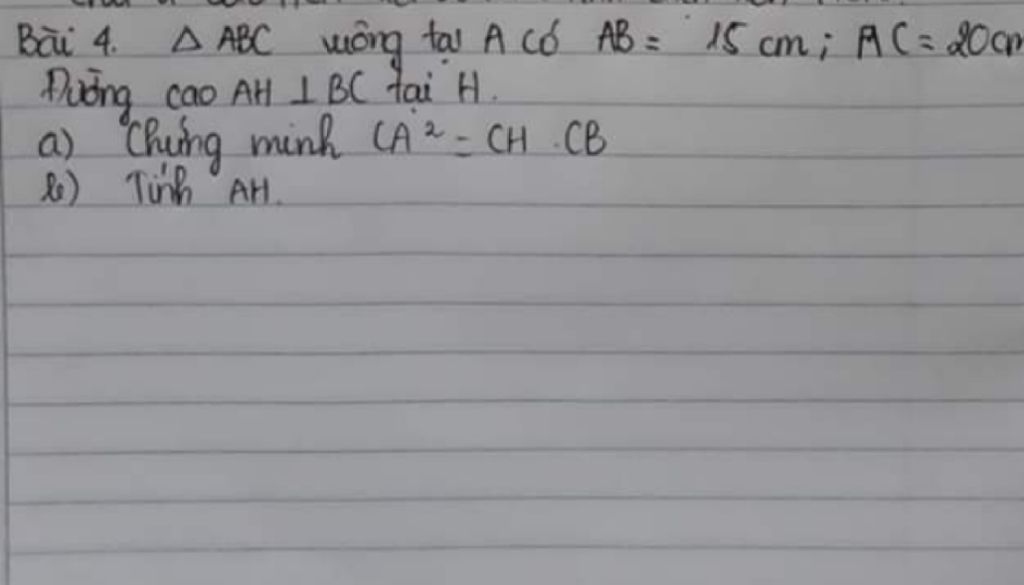 Bài 4. Δ ABC vuông tại A có AB = 15 cm ; AC = 20cm
Đường cao AH ⊥ BC tại H.
a) Chứng minh CA² = CH . CB
b) Tính AH.